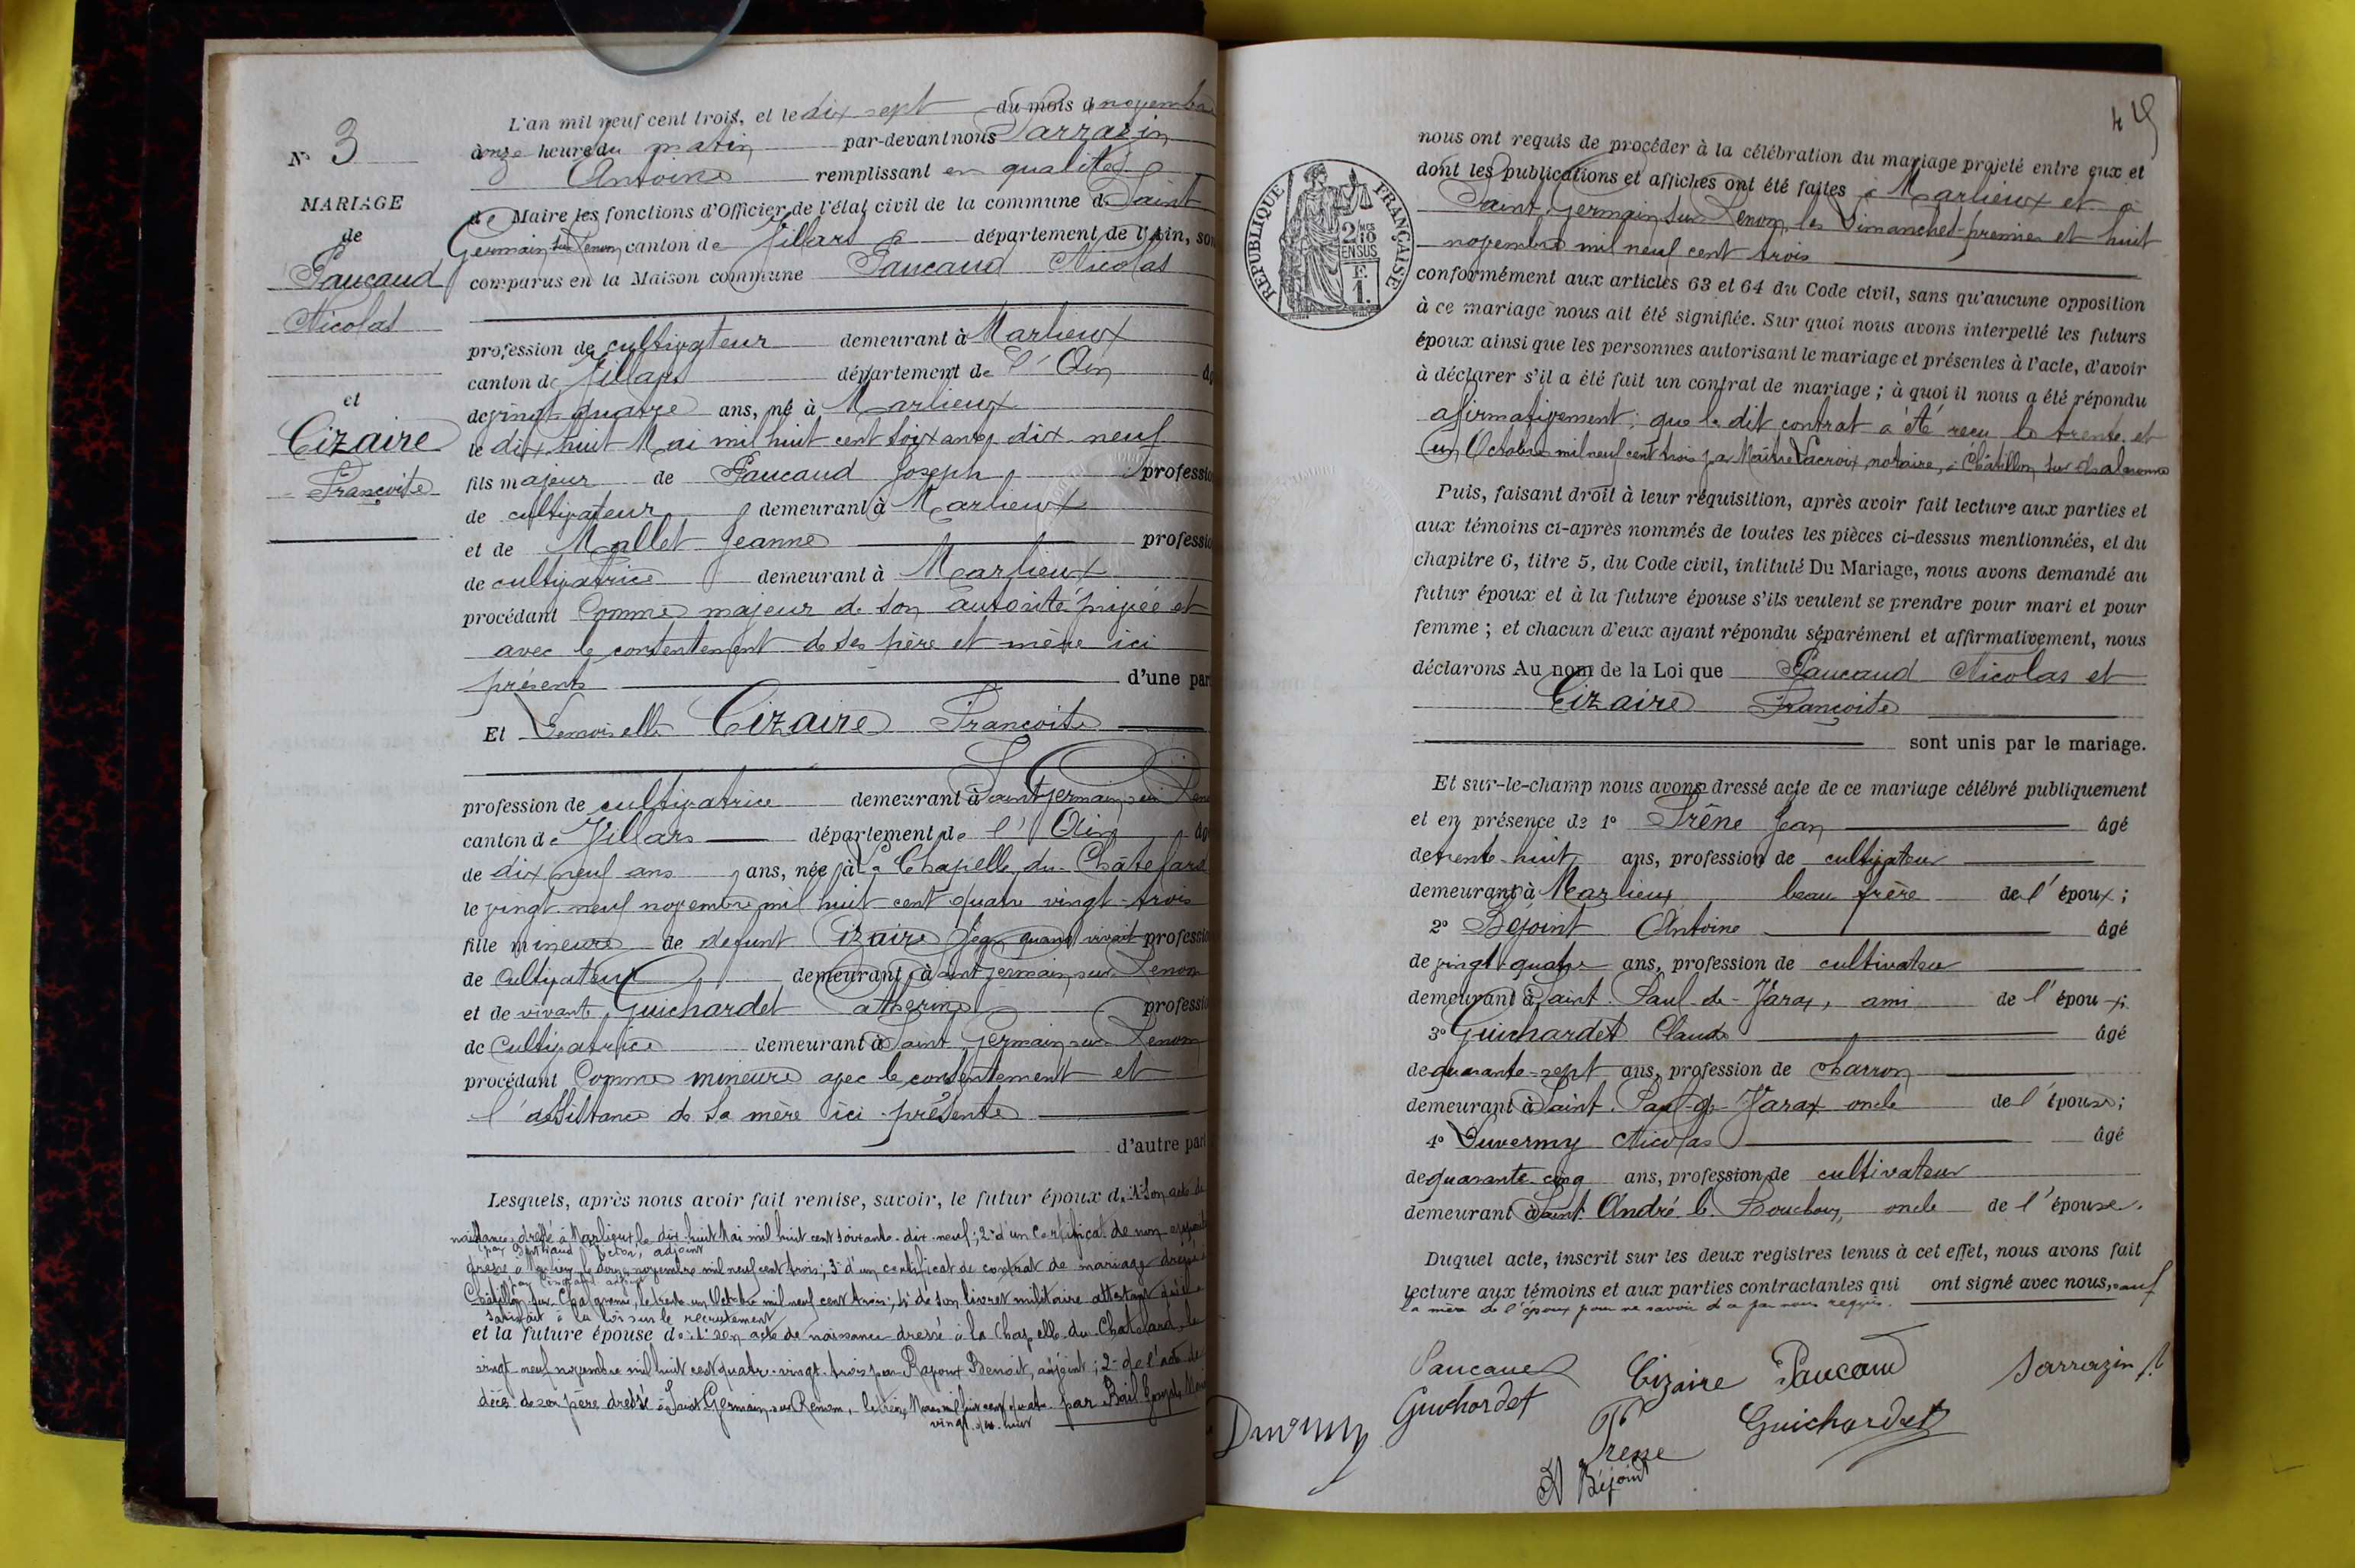 N° 3
MARIAGE
de
Paucaud
Nicolas
et
Cizaire
Françoise
L'an mil neuf cent trois, et le dix sept du mois d novembre
à onze heure du matin par-devant nous Sarrazin
Antoine remplissant en qualité
de Maire les fonctions d'Officier de l'état civil de la commune d Saint
Germain sur Renom canton de Villars département de l'Ain, son
comparus en la Maison commune Paucaud Nicolas
profession de cultivateur demeurant à Marlieux
canton de Villars département de l'Ain âg
de vingt-quatre ans, né à Marlieux
le dix huit Mai mil huit cent soixante dix-neuf
fils majeur de Paucaud Joseph professio
de cultivateur demeurant à Marlieux
et de Mallet Jeanne professio
de cultivatrice demeurant à Marlieux
procédant Comme majeur de son autorité privée et
avec le consentement de ses père et mère ici
présents d'une par
Et Demoiselle Cizaire Françoise
profession de cultivatrice demeurant à Saint Germain sur Reno
canton de Villars département de l'Ain âg
de dix neuf ans ans, née à La Chapelle du Châtelard
le vingt-neuf novembre mil huit cent quatre vingt-trois
fille mineure de defunt Cizaire Jean quand vivait professio
de Cultivateur demeurant à Saint Germain sur Renom
et de vivante Guichardet Catherine professio
de Cultivatrice demeurant à Saint Germain sur Renom
procédant Comme mineure avec le consentement et
l'assistance de sa mère ici présente
d'autre part
Lesquels, après nous avoir fait remise, savoir, le futur époux d. 1° Son acte de
naissance dressé à Marlieux, le dix-huit Mai mil huit cent soixante-dix-neuf; 2° d'un Certificat de non opposit
par adjoint
dressé à Marlieux le novembre mil neuf cent trois; 3° d'un certificat de contrat de mariage dressé
par
Châtillon-sur-Chalaronne, le trente un Octobre mil neuf cent trois; 4° de son livret militaire attestant qu'il a
satisfait à la loi sur le recrutement
et la future épouse de: 1° son acte de naissance dressé à la Chapelle-du-Chatelard, le
vingt-neuf novembre mil huit cent quatre-vingt-trois par Benoit, adjoint; 2° de l'acte de
décès de son père dressé à Saint Germain-sur-Renom, le Mars mil huit cent quatre par Bail Joseph Mai
vingt-dix-huit
nous ont requis de procéder à la célébration du mariage projeté entre eux et
dont les publications et affiches ont été faites à Marlieux et à
Saint Germain sur Renom, les Dimanches premier et huit
novembre mil neuf cent trois
RÉPUBLIQUE FRANÇAISE
2 MES
10
EN SUS
F.
1.
conformément aux articles 63 et 64 du Code civil, sans qu'aucune opposition
à ce mariage nous ait été signifiée. Sur quoi nous avons interpellé les futurs
époux ainsi que les personnes autorisant le mariage et présentes à l'acte, d'avoir
à déclarer s'il a été fait un contrat de mariage; à quoi il nous a été répondu
afirmativement: que le dit contrat a été reçu le trente et
un Octobre mil neuf cent trois par Maître Lacroix, notaire, à Châtillon sur Chalaronne
Puis, faisant droit à leur réquisition, après avoir fait lecture aux parties et
aux témoins ci-après nommés de toutes les pièces ci-dessus mentionnées, et du
chapitre 6, titre 5, du Code civil, intitulé Du Mariage, nous avons demandé au
futur époux et à la future épouse s'ils veulent se prendre pour mari et pour
femme; et chacun d'eux ayant répondu séparément et affirmativement, nous
déclarons Au nom de la Loi que Paucaud Nicolas et
Cizaire Françoise
sont unis par le mariage.
Et sur-le-champ nous avons dressé acte de ce mariage célébré publiquement
et en présence de 1° Trêne Jean âgé
de trente-huit ans, profession de cultivateur
demeurant à Marlieux beau frère de l'époux;
2° Bejoint Antoine âgé
de vingt-quatre ans, profession de cultivateur
demeurant à Saint-Paul-de-Varax, ami de l'époux;
3° Guichardet Claude âgé
de quarante-sept ans, profession de charron
demeurant à Saint-Paul-de-Varax oncle de l'épouse;
4° Duvermy Nicolas âgé
de quarante-cinq ans, profession de cultivateur
demeurant à Saint André le Bouchoux, oncle de l'épouse.
Duquel acte, inscrit sur les deux registres tenus à cet effet, nous avons fait
lecture aux témoins et aux parties contractantes qui ont signé avec nous, sauf
la mère de l'époux pour ne savoir de ce par nous requis.
Paucaud Cizaire Paucaud Sarrazin A
Guichardet Trene Guichardet
Duvermy
A Béjoint